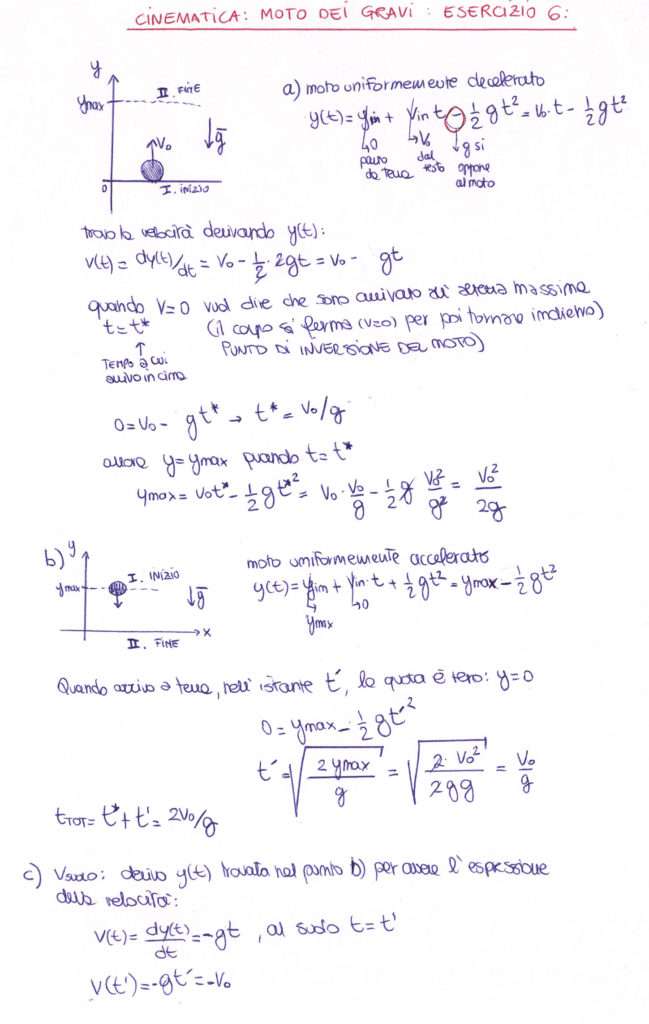 CINEMATICA: MOTO DEI GRAVI: ESERCIZIO 6:
y
ymax
II. FINE
V₀
g
0
I. INIZIO
a) moto uniformemente decelerato
y(t) = yin + Vin t - 1/2 g t² = V₀·t - 1/2 g t²
0
parto da terra
V₀
dal testo
g si oppone al moto
trovo la velocità derivando y(t):
V(t) = dy(t)/dt = V₀ - 1/2 · 2gt = V₀ - gt
quando V=0 vuol dire che sono arrivato all' altezza massima
t = t* (il corpo si ferma (V=0) per poi tornare indietro)
↑ PUNTO DI INVERSIONE DEL MOTO)
TEMPO a cui
arrivo in cima
0 = V₀ - gt* → t* = V₀/g
allora y = ymax quando t = t*
ymax = V₀t* - 1/2 g t*² = V₀ · V₀/g - 1/2 g V₀²/g² = V₀²/2g
b)
y
ymax
I. INIZIO
g
x
II. FINE
moto uniformemente accelerato
y(t) = yin + Vin·t + 1/2 g t² = ymax - 1/2 g t²
ymax
0
Quando arrivo a terra, nell' istante t', la quota è zero: y=0
0 = ymax - 1/2 g t'²
t' = √(2 ymax/g) = √(2·V₀²/2gg) = V₀/g
tTOT = t* + t' = 2V₀/g
c) Vsuolo: derivo y(t) trovata nel punto b) per avere l' espressione
della velocità:
V(t) = dy(t)/dt = -gt, al suolo t = t'
V(t') = -gt' = -V₀